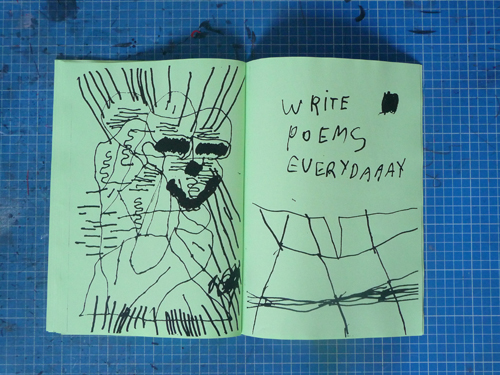 WRITE
POEMS
EVERYDAAAY